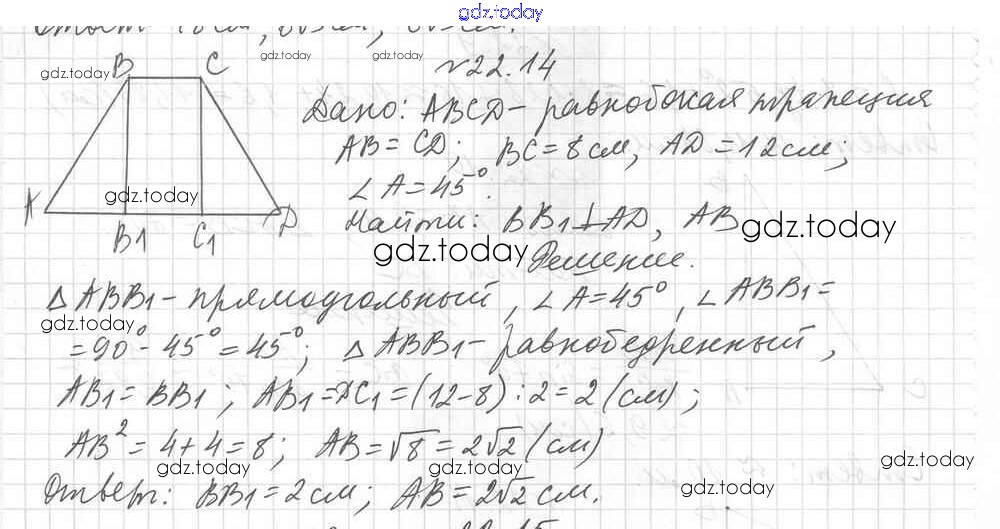 gdz.today
№22.14
B C
gdz.today gdz.today gdz.today
Дано: ABCD - равнобокая трапеция
AB = CD; BC = 8 см, AD = 12 см;
∠A = 45°.
gdz.today
A B1 C1 D
Найти: BB1 ⊥ AD, AB
gdz.today gdz.today
Решение.
△ABB1 - прямоугольный, ∠A = 45°, ∠ABB1 =
gdz.today
= 90° - 45° = 45°; △ABB1 - равнобедренный,
AB1 = BB1; AB1 = DC1 = (12-8):2 = 2 (см);
AB² = 4+4 = 8; AB = √8 = 2√2 (см)
gdz.today gdz.today gdz.today
Ответ: BB1 = 2 см; AB = 2√2 см.
gdz.today